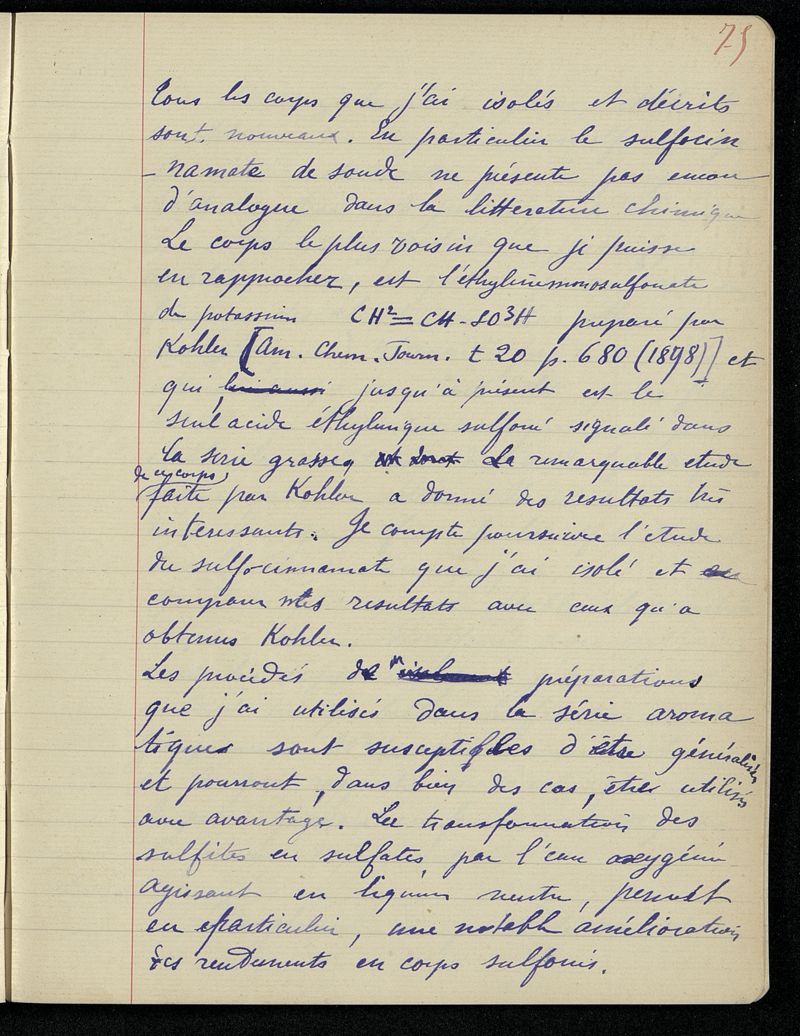 75
Tous les corps que j'ai isolés et décrits
sont nouveaux. En particulier le sulfocin
-namate de soude ne présente pas encore
d'analogue dans la litterature chimique
Le corps le plus voisin que je puisse
en rapprocher, est l'éthylènemonosulfonate
de potassium CH²=CH-SO³H préparé par
Kohler [Am. Chem. Journ. t 20 p. 680 (1898)] et
qui lui aussi jusqu'à présent est le
seul acide éthylénique sulfoné signalé dans
la série grasse La remarquable etude
de ces corps
faite par Kohler a donné des resultats très
interessants. Je compte poursuivre l'etude
du sulfocinnamate que j'ai isolé et
comparer mes resultats avec ceux qu'a
obtenus Kohler.
Les procédés de préparations
que j'ai utilisés dans la série aroma
tique sont susceptibles d'être généralisés
et pourront, dans bien des cas, être utilisés
avec avantage. La transformation des
sulfites en sulfates, par l'eau oxygénée
agissant en liqueur neutre, permet
en particulier, une notable amélioration
des rendements en corps sulfonés.